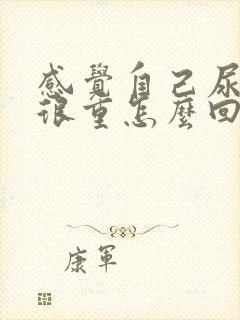 感覺自己尿
很重怎麼回
康軍